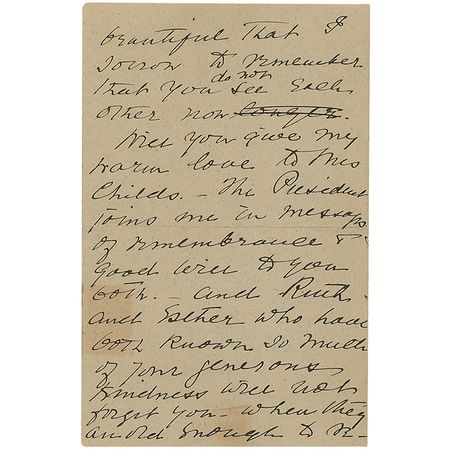 beautiful That I
sorrow to remember
do not
that you see Each
other now longer.
Will you give my
warm love to Mrs
Childs. - The President
joins me in messages
of remembrance &
good will to you
both. - And Ruth
and Esther who have
both Known so much
of your generous
Kindness will not
forget you - when they
are old Enough to re-